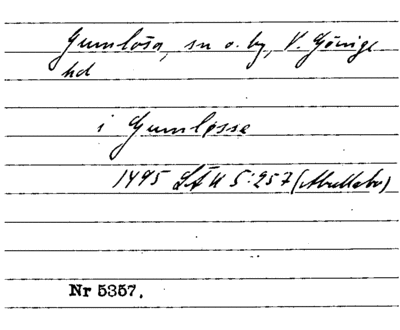 Gumlösa, sn o. by, V. Göinge
hd
i Gumløsse
1495 LÄU 5:257 (Mullabo)
Nr 5357.